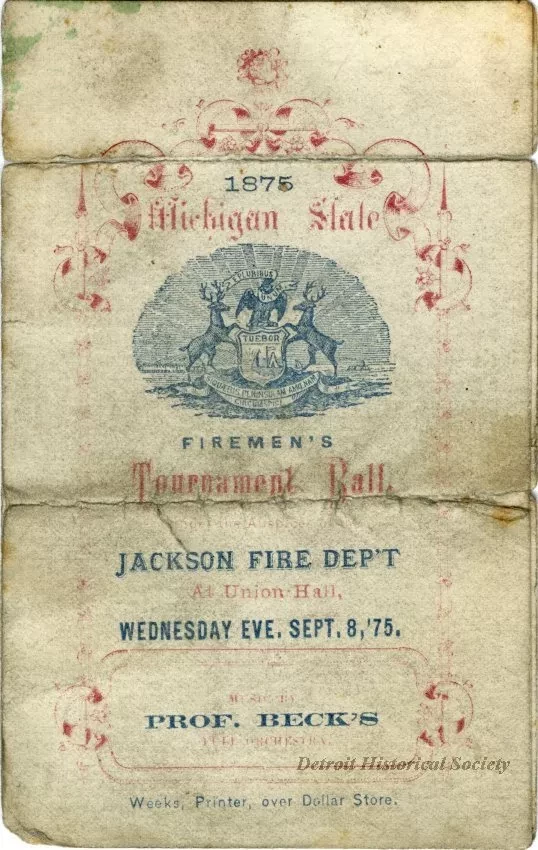 1875
Michigan State
E PLURIBUS
UNUM
TUEBOR
CIRCUMSPICE
FIREMEN'S
Tournament Ball.
JACKSON FIRE DEP'T
At Union Hall,
WEDNESDAY EVE. SEPT. 8, '75.
MUSIC BY
PROF. BECK'S
FULL ORCHESTRA.
Detroit Historical Society
Weeks, Printer, over Dollar Store.